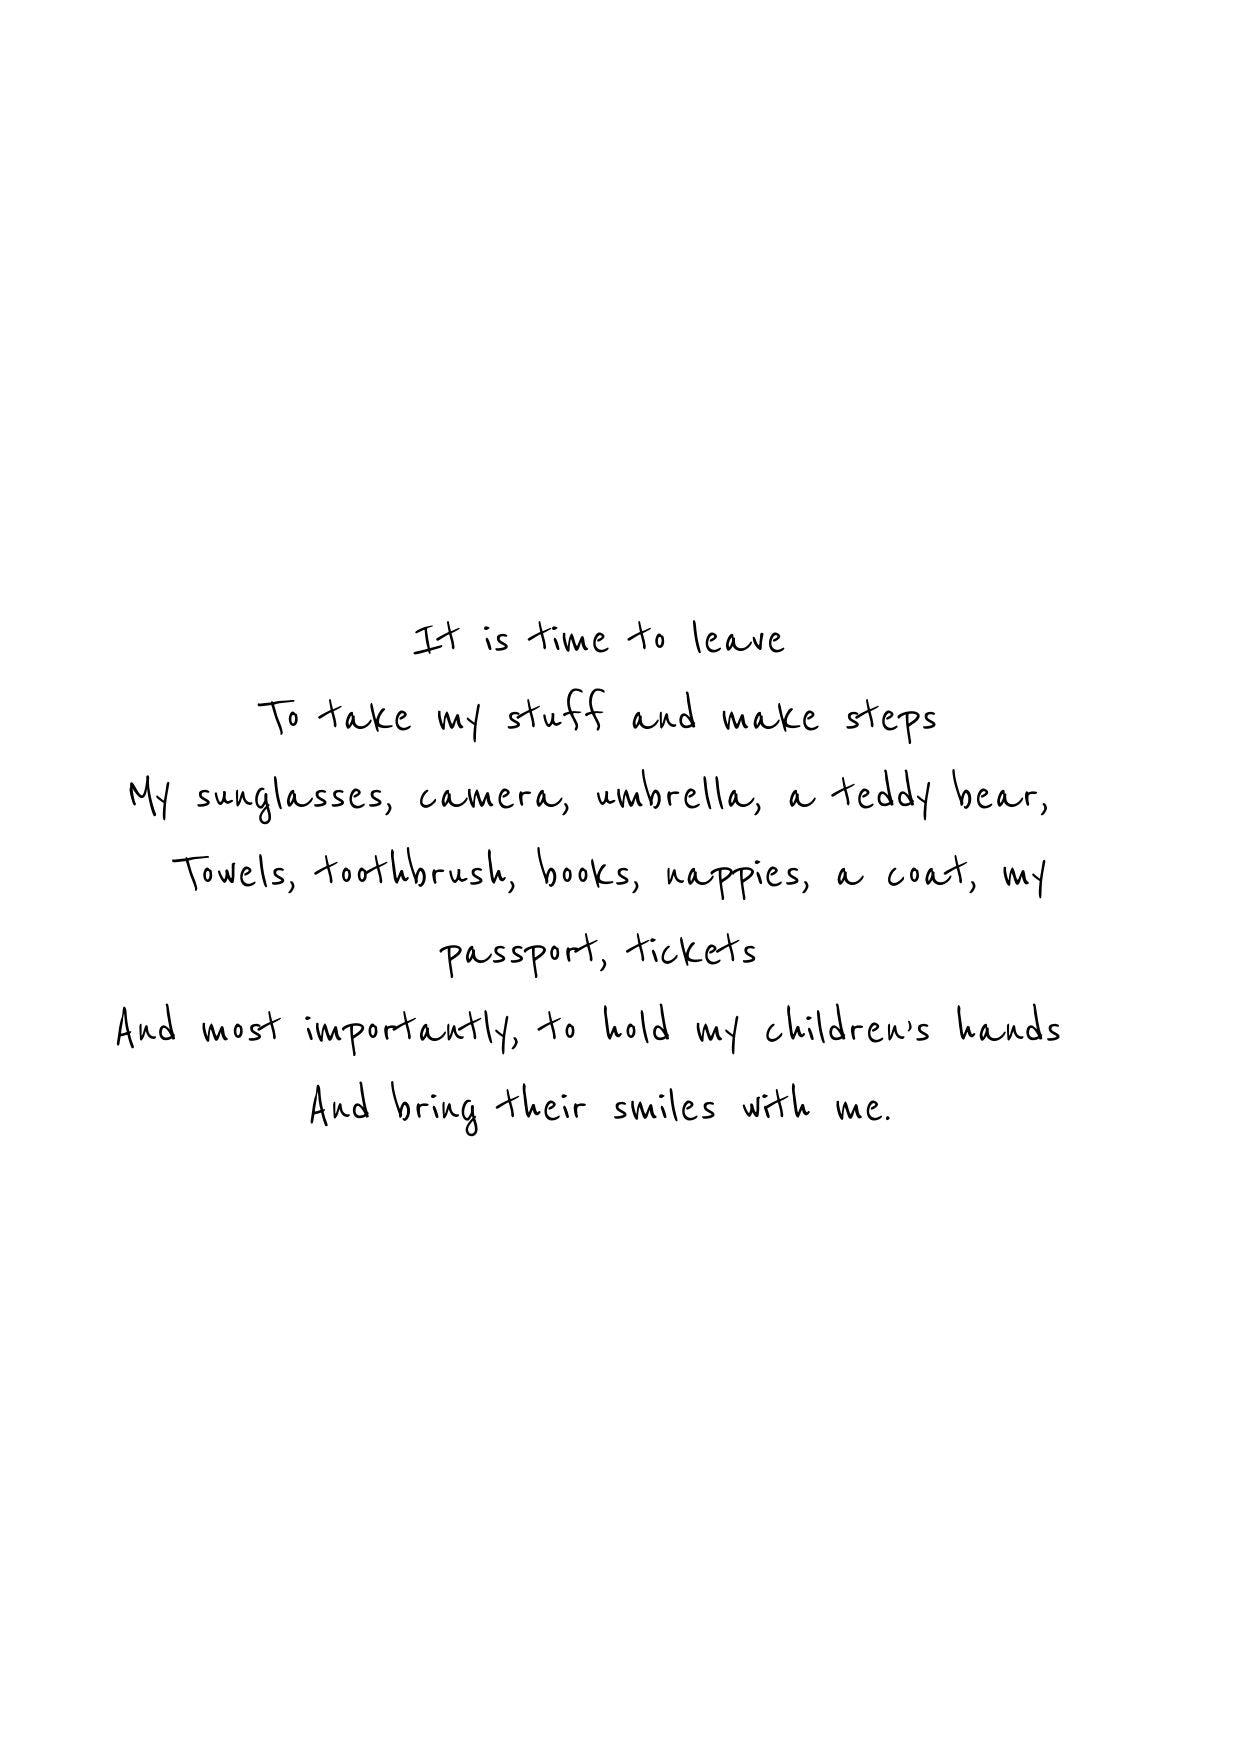 It is time to leave
To take my stuff and make steps
My sunglasses, camera, umbrella, a teddy bear,
Towels, toothbrush, books, nappies, a coat, my
passport, tickets
And most importantly, to hold my children's hands
And bring their smiles with me.